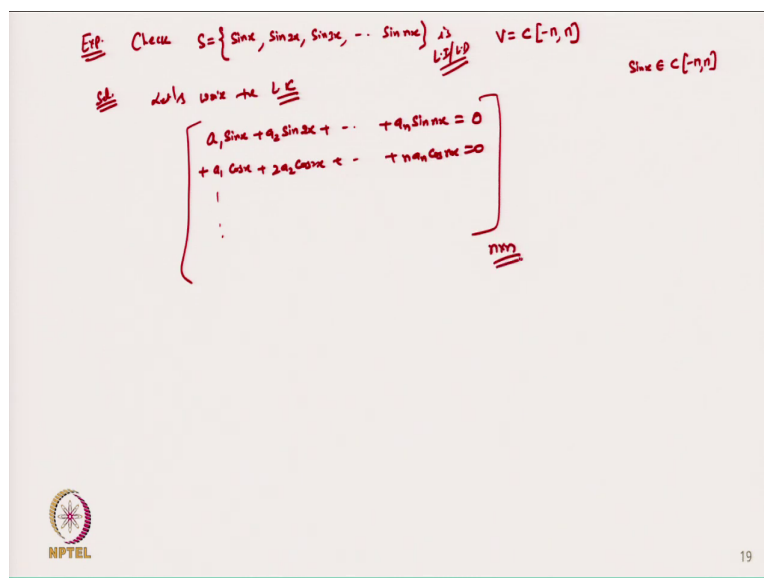 Exp. Check S={Sinx, Sin2x, Sin3x, -- Sin nx} is L.I/L.D V=C[-π,π]
Sinx ∈ C[-π,π]
Sol. Let's write the L.C
a₁Sinx + a₂Sin2x + -- + aₙSinnx = 0
+ a₁Cosx + 2a₂Cos2x + - + naₙCosnx = 0
n×n
NPTEL
19